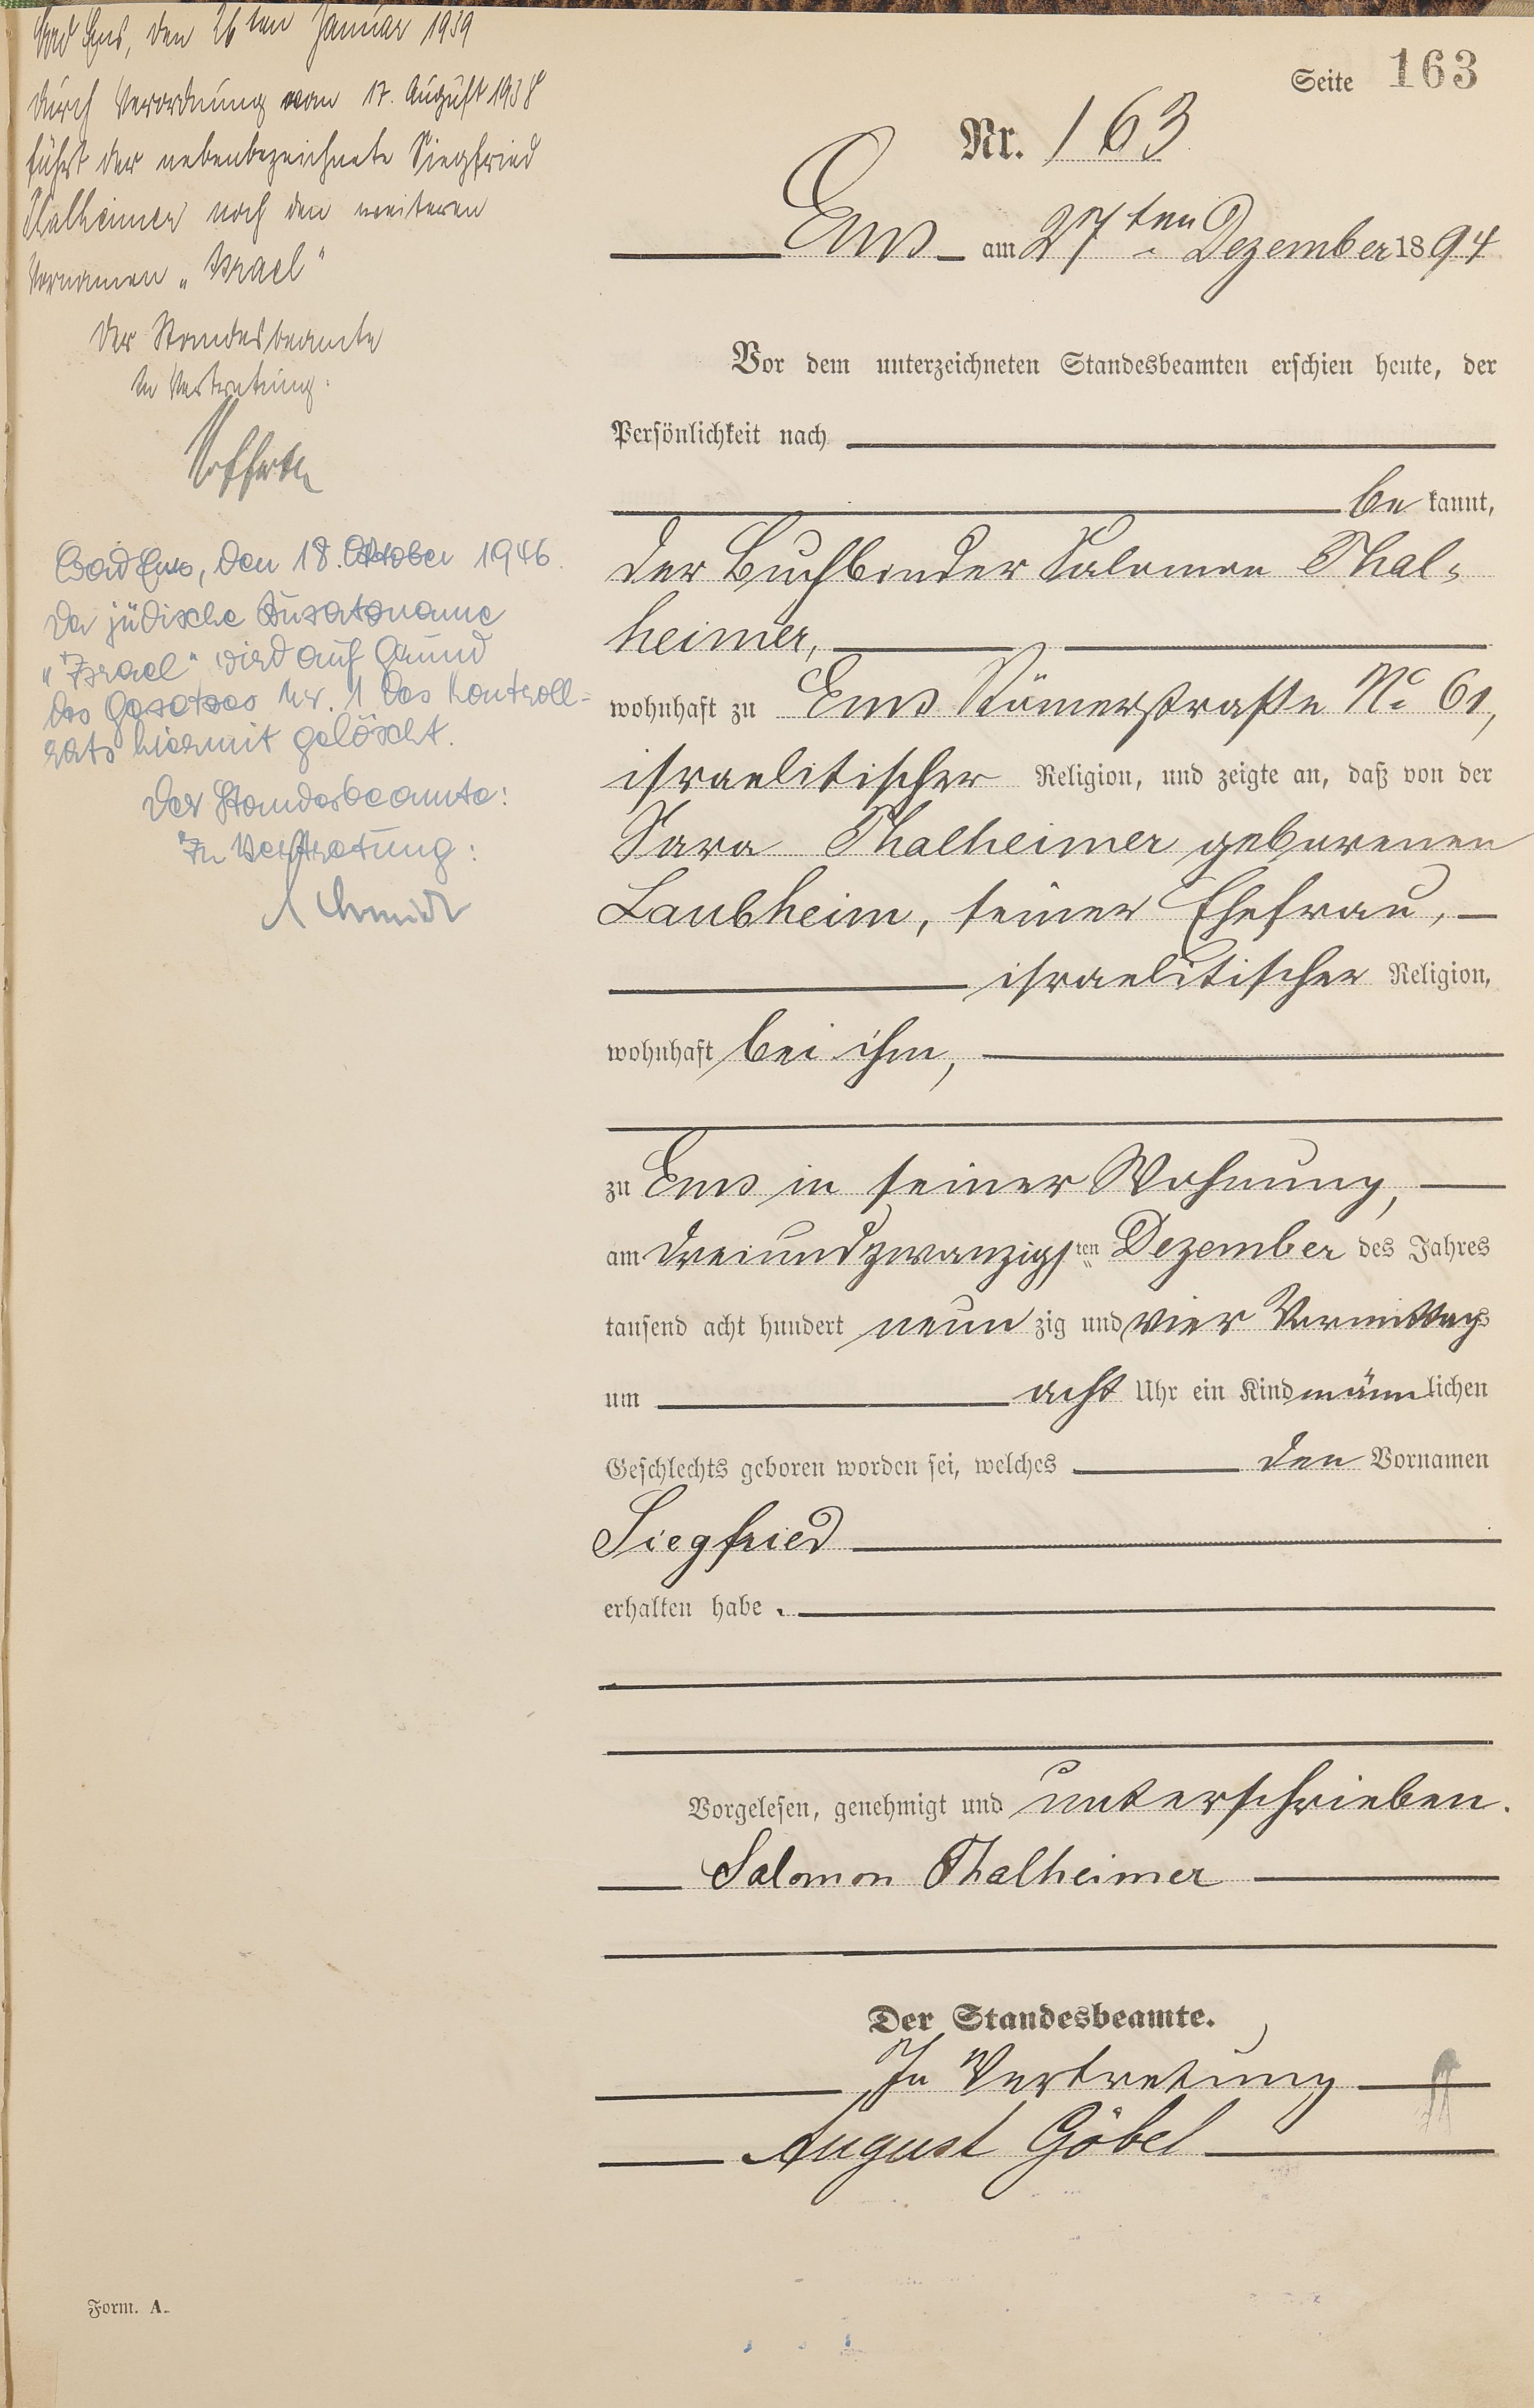 Bad Ems, den 26ten Januar 1939
durch Verordnung vom 17. August 1938
führt der nebenbezeichnete Siegfried
Thalheimer noch den weiteren
Vornamen „Israel"
Der Standesbeamte
In Vertretung:
Bad Ems, den 18. Oktober 1946.
Der jüdische Zusatzname
„Israel" wird auf Grund
des Gesetzes Nr. 1 des Kontroll-
rats hiermit gelöscht.
Der Standesbeamte:
In Vertretung:
Schmidt
Seite 163
Nr. 163
Ems am 27ten Dezember 1894
Vor dem unterzeichneten Standesbeamten erschien heute, der
Persönlichkeit nach
be kannt,
der Buchbinder Salomon Thal-
heimer,
wohnhaft zu Ems Römerstraße No 61,
israelitischer Religion, und zeigte an, daß von der
Sara Thalheimer geborenen
Laubheim, seiner Ehefrau,
israelitischer Religion,
wohnhaft bei ihm,
zu Ems in seiner Wohnung,
am dreiundzwanzigsten Dezember des Jahres
tausend acht hundert neun zig und vier Vormittags
um acht Uhr ein Kind männlichen
Geschlechts geboren worden sei, welches den Vornamen
Siegfried
erhalten habe.
Vorgelesen, genehmigt und unterschrieben.
Salomon Thalheimer
Der Standesbeamte.
In Vertretung
August Göbel
Form. A.